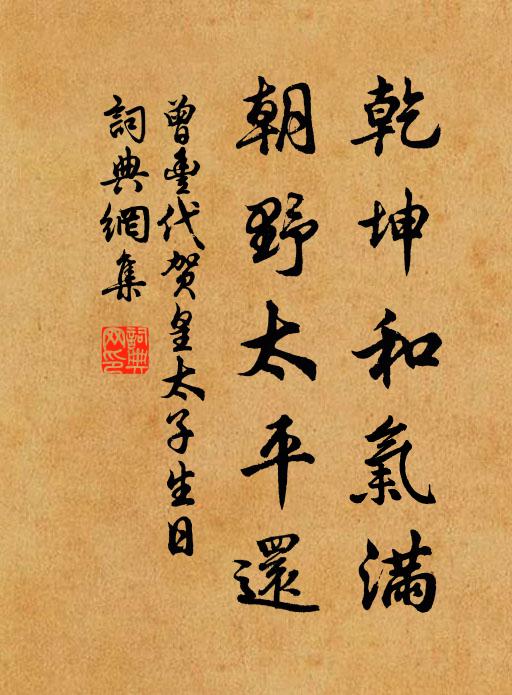 乾坤和氣滿
朝野太平還
曾豐代賀皇太子生日
詞典網集
詞典网印